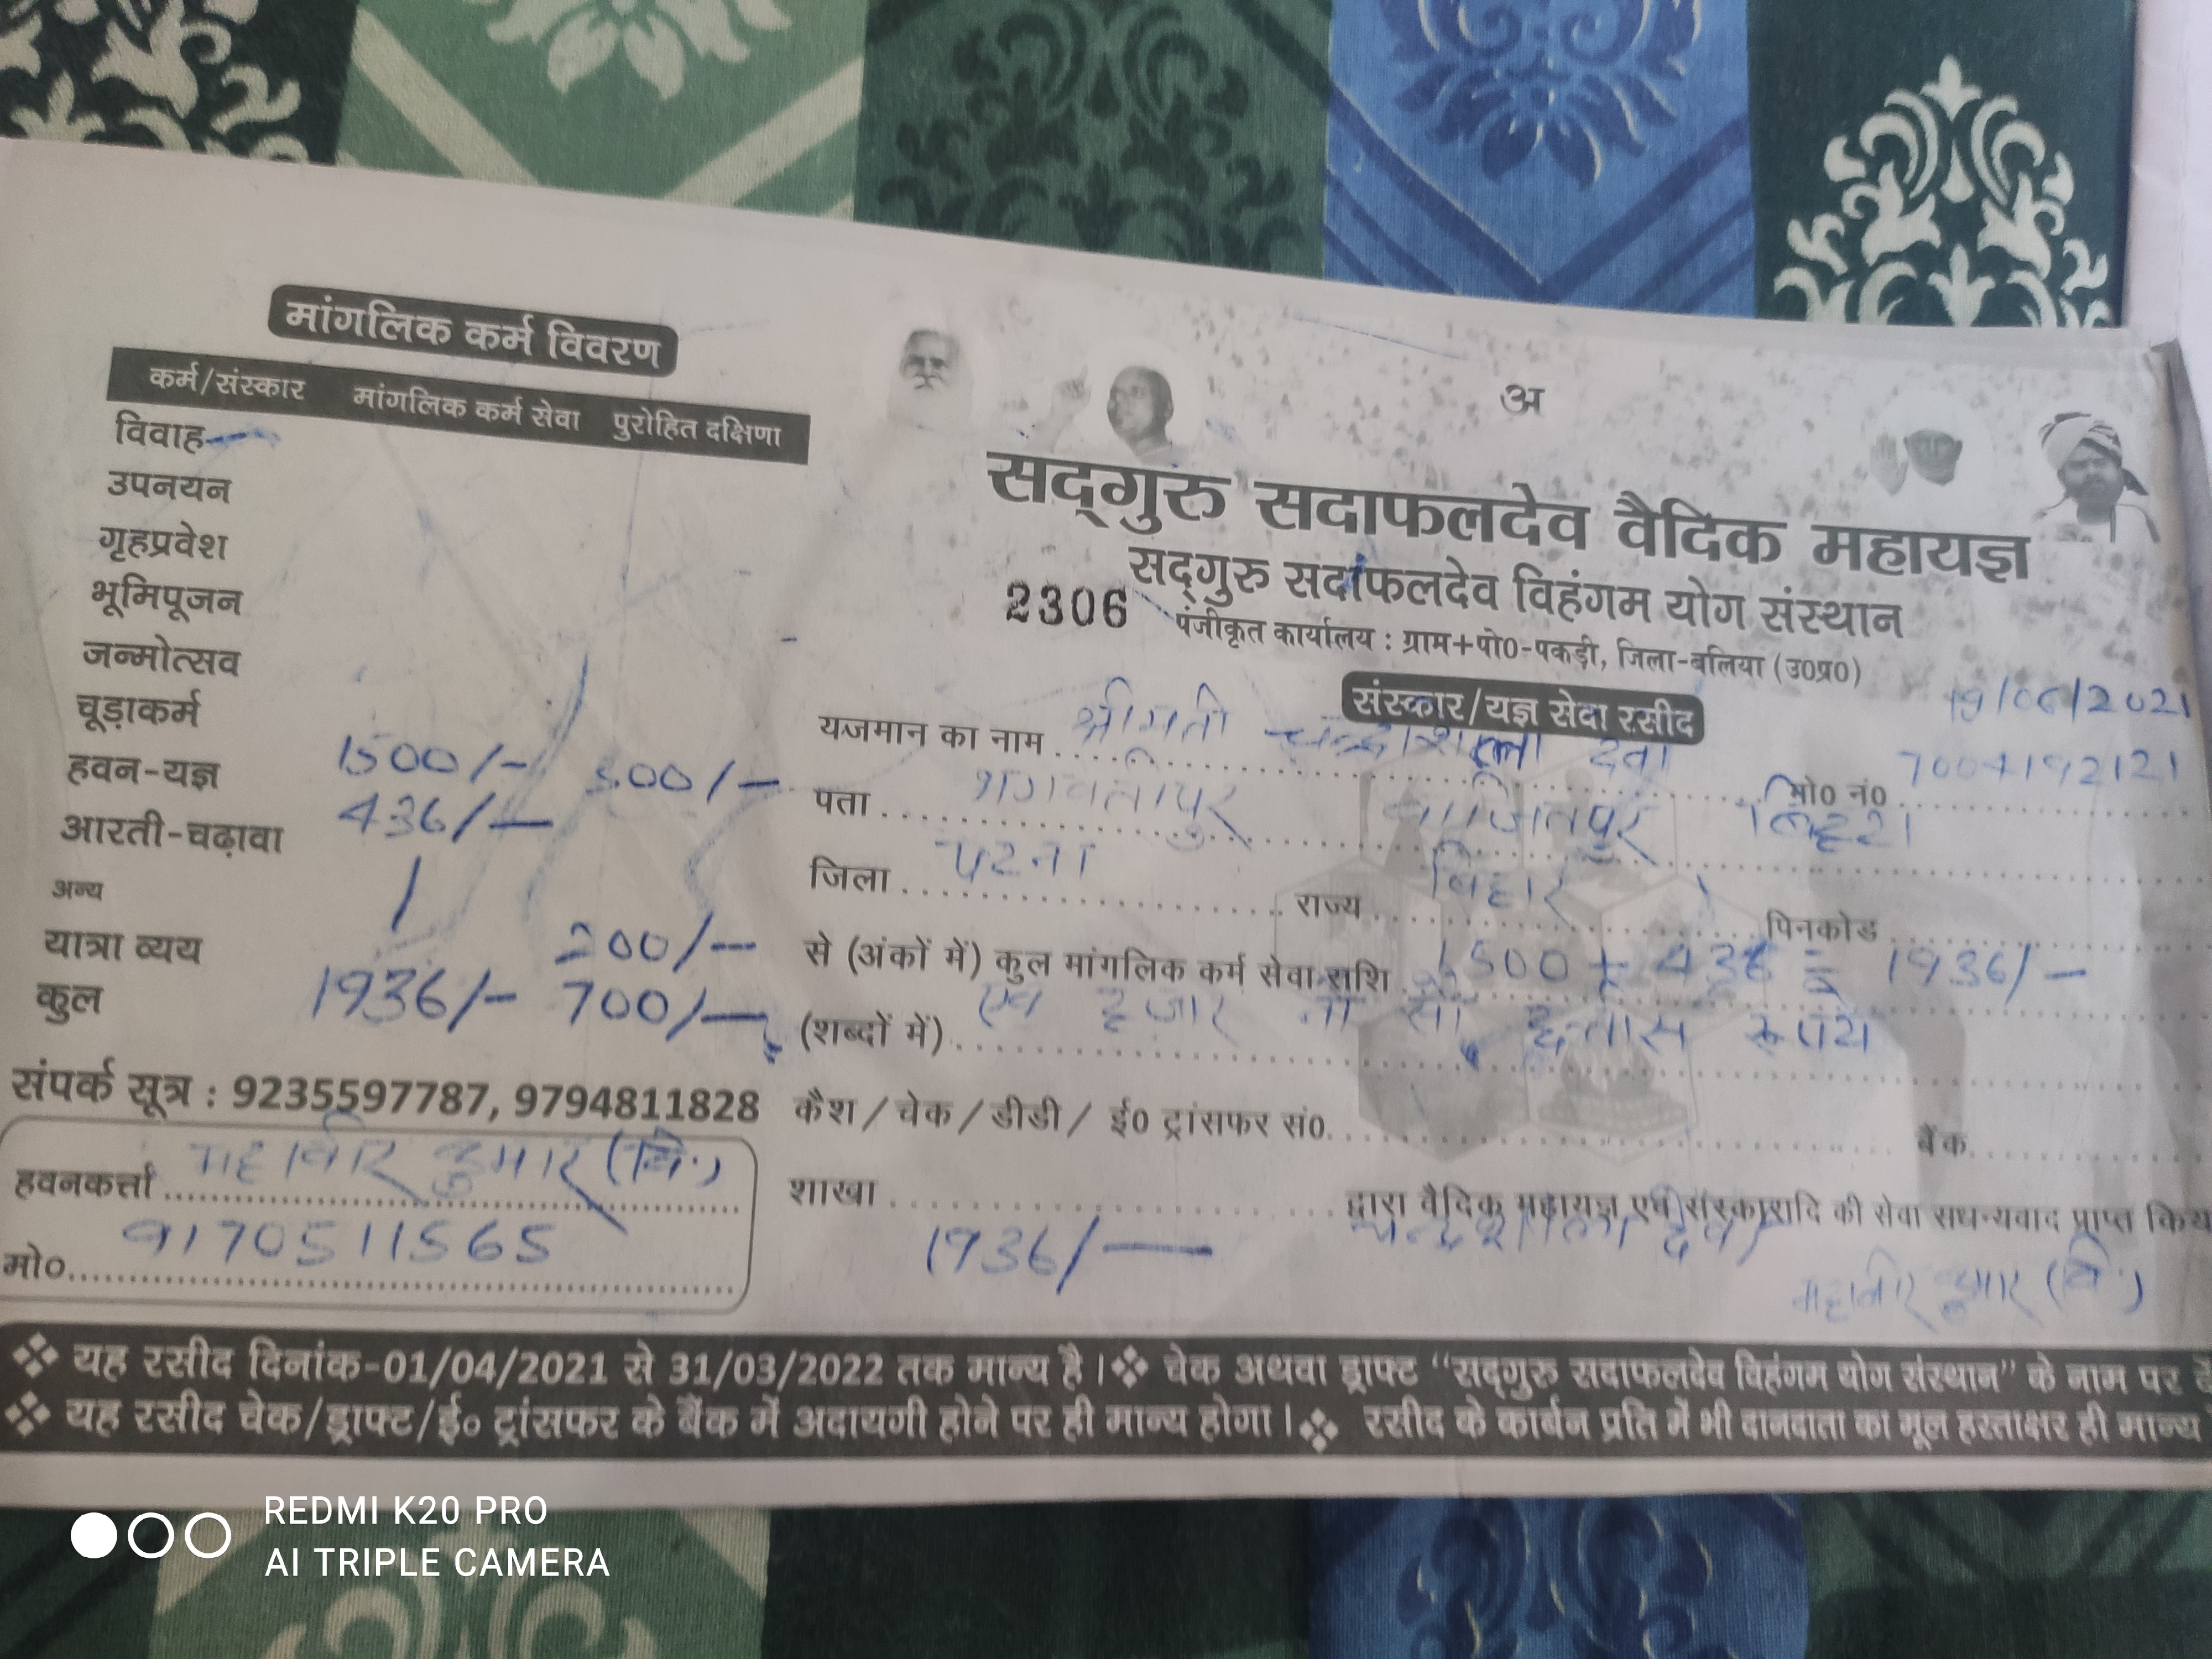 मांगलिक कर्म विवरण
कर्म/संस्कार मांगलिक कर्म सेवा पुरोहित दक्षिणा
विवाह
उपनयन
गृहप्रवेश
भूमिपूजन
जन्मोत्सव
चूड़ाकर्म
हवन-यज्ञ 1500/- 500/-
आरती-चढ़ावा 436/-
अन्य
यात्रा व्यय 200/-
कुल 1936/- 700/-
संपर्क सूत्र : 9235597787, 9794811828
हवनकर्त्ता महावीर कुमार (वि.)
मो० 9170511565
अ
सद्गुरु सदाफलदेव वैदिक महायज्ञ
सद्गुरु सदाफलदेव विहंगम योग संस्थान
2306 पंजीकृत कार्यालय : ग्राम+पो०-पकड़ी, जिला-बलिया (उ०प्र०)
संस्कार/यज्ञ सेवा रसीद 19/06/2021
यजमान का नाम श्रीमती देवी मो० नं० 7004192121
पता भगवतीपुर बिहटा
जिला पटना राज्य बिहार पिनकोड
से (अंकों में) कुल मांगलिक कर्म सेवा राशि 1500 + 436 = 1936/-
(शब्दों में) एक हजार नौ सौ छत्तीस रूपये
कैश / चेक / डीडी / ई० ट्रांसफर सं० बैंक
शाखा द्वारा वैदिक महायज्ञ एवं संस्कारादि की सेवा सधन्यवाद प्राप्त
1936/- देवी
महावीर कुमार (वि.)
❖ यह रसीद दिनांक-01/04/2021 से 31/03/2022 तक मान्य है । ❖ चेक अथवा ड्राफ्ट “सद्गुरु सदाफलदेव विहंगम योग संस्थान” के नाम पर
❖ यह रसीद चेक/ड्राफ्ट/ई० ट्रांसफर के बैंक में अदायगी होने पर ही मान्य होगा । ❖ रसीद के कार्बन प्रति में भी दानदाता का मूल हस्ताक्षर ही मान्य
REDMI K20 PRO
AI TRIPLE CAMERA